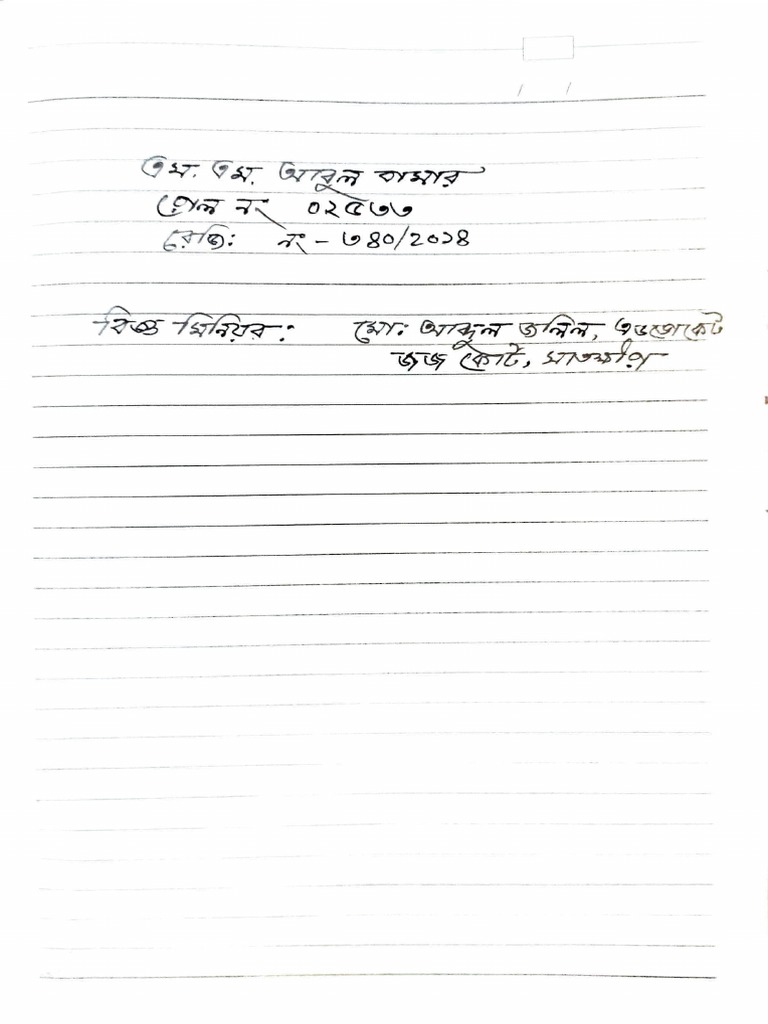 এম. এম. আবুল বাসার
রোল নং ০২৫৩৩
রেজি: নং - ৩৪০/২০১৪
বিজ্ঞ সিনিয়র: মো: আব্দুল জলিল, এডভোকেট
জজ কোর্ট, সাতক্ষীরা